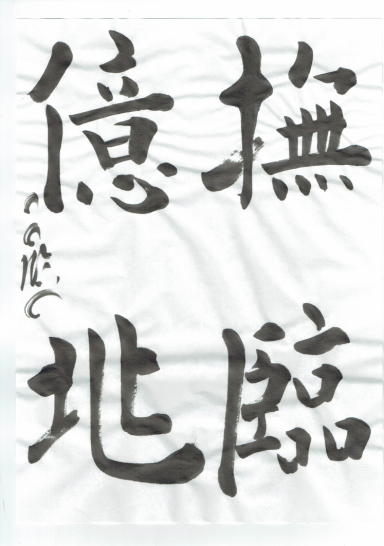 撫臨
億兆